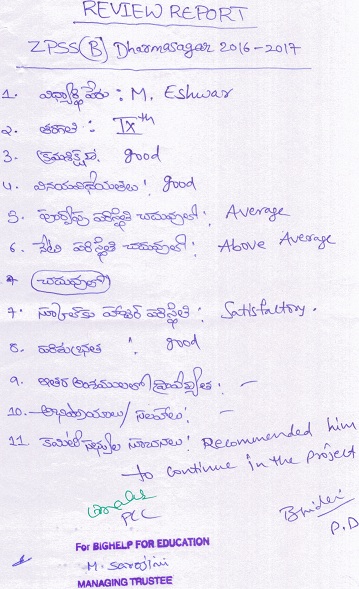 REVIEW REPORT
ZPSS (B) Dharmasagar 2016-2017
1. విద్యార్థి పేరు : M. Eshwar
2. తరగతి : IXth
3. క్రమశిక్షణ. good
4. వినయవిధేయతలు : good
5. పూర్వపు పరిస్థితి చదువులో : Average
6. నేటి పరిస్థితి చదువులో : Above Average
చదువులో
7. స్కూల్‌కు హాజరు పరిస్థితి : Satisfactory.
8. పరిశుభ్రత : good
9. ఇతర అంశములలో ప్రావీణ్యత : -
10. అభిప్రాయాలు/ సలహాలు : -
11. కమిటీ సభ్యుల సూచనలు : Recommended him
to continue in the project
PLC
P.D
For BIGHELP FOR EDUCATION
M. Sarojini
MANAGING TRUSTEE